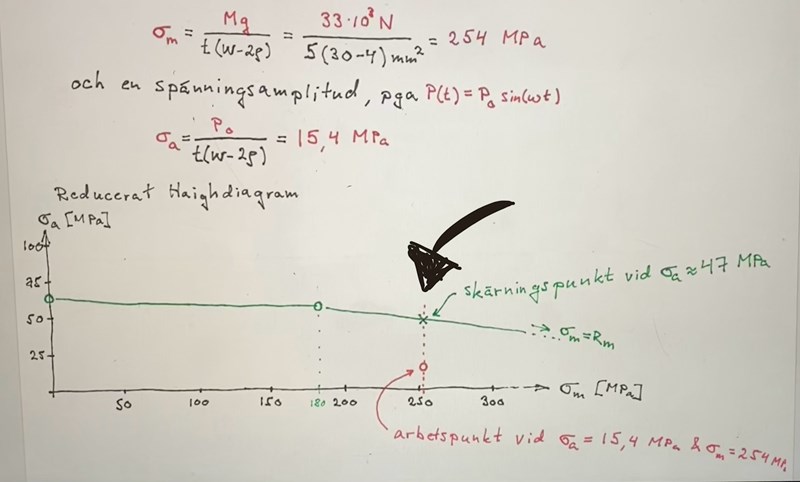 σm = Mg / t(w-2ρ) = 33·10³ N / 5(30-4) mm² = 254 MPa
och en spänningsamplitud, pga P(t) = P₀ sin(ωt)
σa = P₀ / t(w-2ρ) = 15,4 MPa
Reducerat Haighdiagram
σa [MPa]
100
75
skärningspunkt vid σa ≈ 47 MPa
50
σm = Rm
25
50 100 150 180 200 250 300 σm [MPa]
arbetspunkt vid σa = 15,4 MPa & σm = 254 MPa